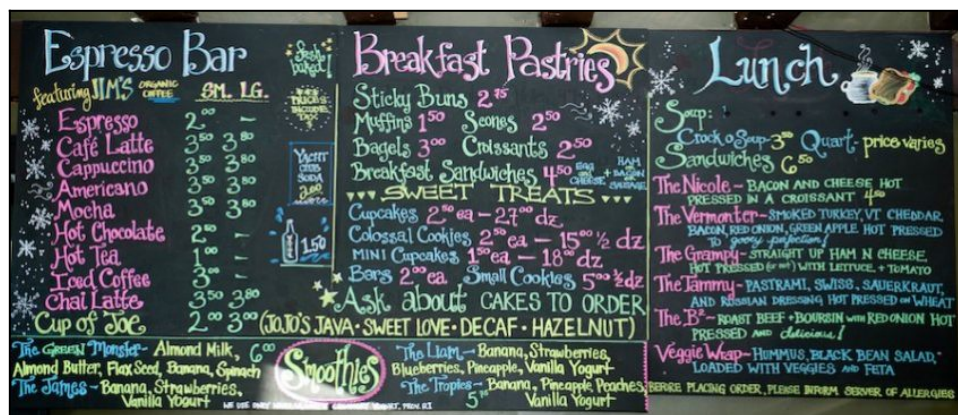 Espresso Bar
fresh
baked!
featuring JIM'S ORGANIC
COFFEE
SM. LG.
PRICES
INCLUDE
TAX
Espresso 2⁰⁰ –
Café Latte 3⁵⁰ 3⁸⁰
Cappuccino 3⁵⁰ 3⁸⁰
Americano 3⁵⁰ 3⁸⁰
Mocha 3⁵⁰ 3⁸⁰
Hot Chocolate 2⁵⁰ –
Hot Tea 1⁰⁰ –
Iced Coffee 3⁰⁰ –
Chai Latte 3⁵⁰ 3⁸⁰
Cup of Joe 2⁰⁰ 3⁰⁰ (JOJO'S JAVA · SWEET LOVE · DECAF · HAZELNUT)
YACHT
CLUB
SODA
2.00
1.50
Breakfast Pastries
Sticky Buns 2⁷⁵
Muffins 1⁵⁰ Scones 2⁵⁰
Bagels 3⁰⁰ Croissants 2⁵⁰
Breakfast Sandwiches 4⁵⁰ EGG
CHEESE
HAM
BACON
SAUSAGE
SWEET TREATS
Cupcakes 2⁵⁰ ea – 27⁰⁰ dz
Colossal Cookies 2⁵⁰ ea – 15⁰⁰ ½ dz
MINI Cupcakes 1⁵⁰ ea – 18⁰⁰ dz
Bars 2⁰⁰ ea Small Cookies 5⁰⁰ ½ dz
Ask about CAKES TO ORDER
Lunch
Soup:
Crock o Soup - 3⁵⁰ Quart - price varies
Sandwiches 6⁵⁰
The Nicole - BACON AND CHEESE HOT
PRESSED IN A CROISSANT 4⁵⁰
The Vermonter - SMOKED TURKEY, VT CHEDDAR,
BACON, RED ONION, GREEN APPLE HOT PRESSED
TO gooey perfection!
The Grampy - STRAIGHT UP HAM N CHEESE
HOT PRESSED (or not) WITH LETTUCE + TOMATO
The Tammy - PASTRAMI, SWISS, SAUERKRAUT,
AND RUSSIAN DRESSING HOT PRESSED ON WHEAT
The B² - ROAST BEEF + BOURSIN WITH RED ONION HOT
PRESSED AND delicious!
Veggie Wrap - HUMMUS, BLACK BEAN SALAD,
LOADED WITH VEGGIES AND FETA
BEFORE PLACING ORDER, PLEASE INFORM SERVER OF ALLERGIES
Smoothies
The GREEN Monster - Almond Milk, 6⁰⁰
Almond Butter, Flax Seed, Banana, Spinach
The James - Banana, Strawberries,
Vanilla Yogurt
The Liam - Banana, Strawberries,
Blueberries, Pineapple, Vanilla Yogurt
The Tropics - Banana, Pineapple, Peaches,
5⁷⁵ Vanilla Yogurt
WE USE ONLY YOGURT, PROV. RI